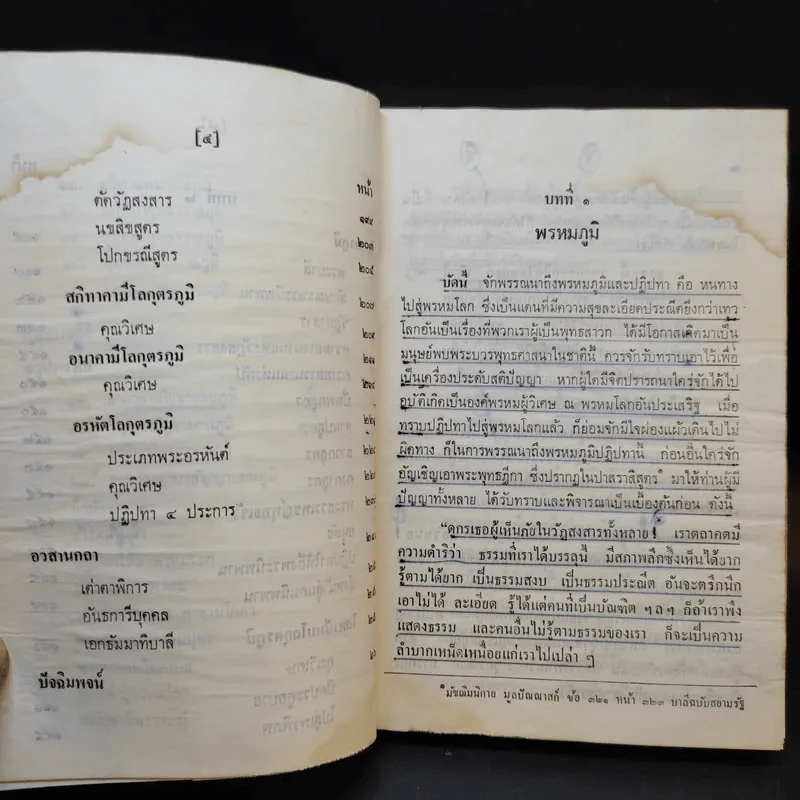 [๔]
หน้า
ตัดวัฏสงสาร ๑๙๙
นขสิขสูตร ๒๐๓
โปกขรณีสูตร ๒๐๕
สกิทาคามีโลกุตรภูมิ ๒๐๗
คุณวิเศษ ๒๐๙
อนาคามีโลกุตรภูมิ ๒๑๑
คุณวิเศษ ๒๑๔
อรหัตโลกุตรภูมิ
ประเภทพระอรหันต์
คุณวิเศษ
ปฏิปทา ๔ ประการ
อวสานกถา
เต่าตาพิการ
อันธการีบุคคล
เอกธัมมาทิบาลี
ปัจฉิมพจน์
บทที่ ๑
พรหมภูมิ
บัดนี้ จักพรรณนาถึงพรหมภูมิและปฏิปทา คือ หนทาง
ไปสู่พรหมโลก ซึ่งเป็นแดนที่มีความสุขละเอียดประณีตยิ่งกว่าเทว
โลกอันเป็นเรื่องที่พวกเราผู้เป็นพุทธสาวก ได้มีโอกาสเกิดมาเป็น
มนุษย์พบพระบวรพุทธศาสนาในชาตินี้ ควรจักรับทราบเอาไว้เพื่อ
เป็นเครื่องประดับสติปัญญา หากผู้ใดมีจิตปรารถนาใคร่จักได้ไป
อุบัติเกิดเป็นองค์พรหมผู้วิเศษ ณ พรหมโลกอันประเสริฐ เมื่อ
ทราบปฏิปทาไปสู่พรหมโลกแล้ว ก็ย่อมจักมีใจผ่องแผ้วเดินไปไม่
ผิดทาง ก็ในการพรรณนาถึงพรหมภูมิปฏิปทานี้ ก่อนอื่นใคร่จัก
อัญเชิญเอาพระพุทธฎีกา ซึ่งปรากฏในปาสราสิสูตร* มาให้ท่านผู้มี
ปัญญาทั้งหลาย ได้รับทราบและพิจารณาเป็นเบื้องต้นก่อน ดังนี้
“ดูกรเธอผู้เห็นภัยในวัฏสงสารทั้งหลาย! เราตถาคตมี
ความดำริว่า ธรรมที่เราได้บรรลุนี้ มีสภาพลึกซึ้งเห็นได้ยาก
รู้ตามได้ยาก เป็นธรรมสงบ เป็นธรรมประณีต อันจะตรึกนึก
เอาไม่ได้ ละเอียด รู้ได้แต่คนที่เป็นบัณฑิต ฯลฯ ก็ถ้าเราพึง
แสดงธรรม และคนอื่นไม่รู้ตามธรรมของเรา ก็จะเป็นความ
ลำบากเหน็ดเหนื่อยแก่เราไปเปล่า ๆ
*มัชฌิมนิกาย มูลปัณณาสก์ ข้อ ๓๒๑ หน้า ๓๒๓ บาลีฉบับสยามรัฐ